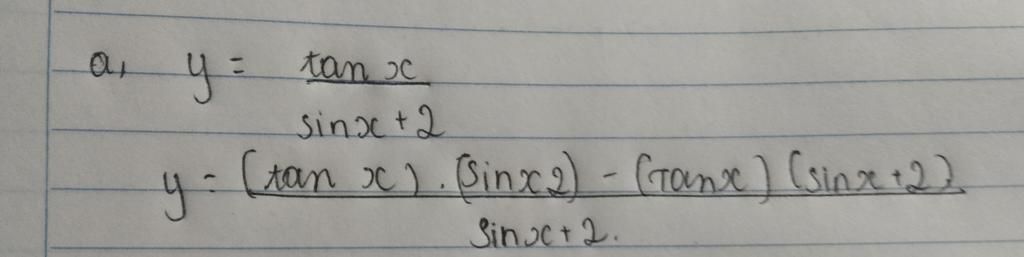 a, y = tan x
sinx + 2
y = (tan x) . (sinx2) - (Tanx) (sinx+2)
sinx + 2.